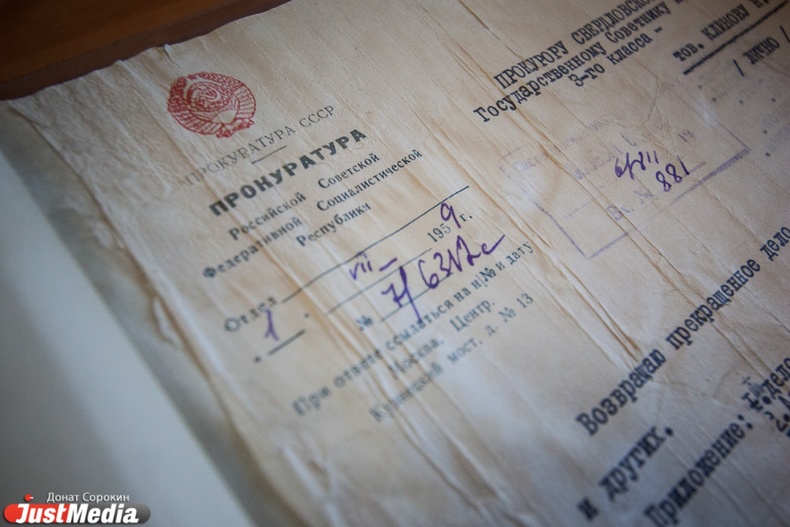 ПРОКУРАТУРА СССР
ПРОКУРАТУРА
Российской Советской
Федеративной Социалистической
Республики
Отдел
VII 1959 г.
1
№
При ответе ссылаться на н/№ и дату
Москва, Центр.
Кузнецкий мост, д. № 13
ПРОКУРОРУ
Государственному Советнику
3-го класса -
тов. КЛИНОВУ
/ЛИЧНО/
19
881
Возвращаю прекращенное дело
и других.
Приложение:
Донат Сорокин
JustMedia